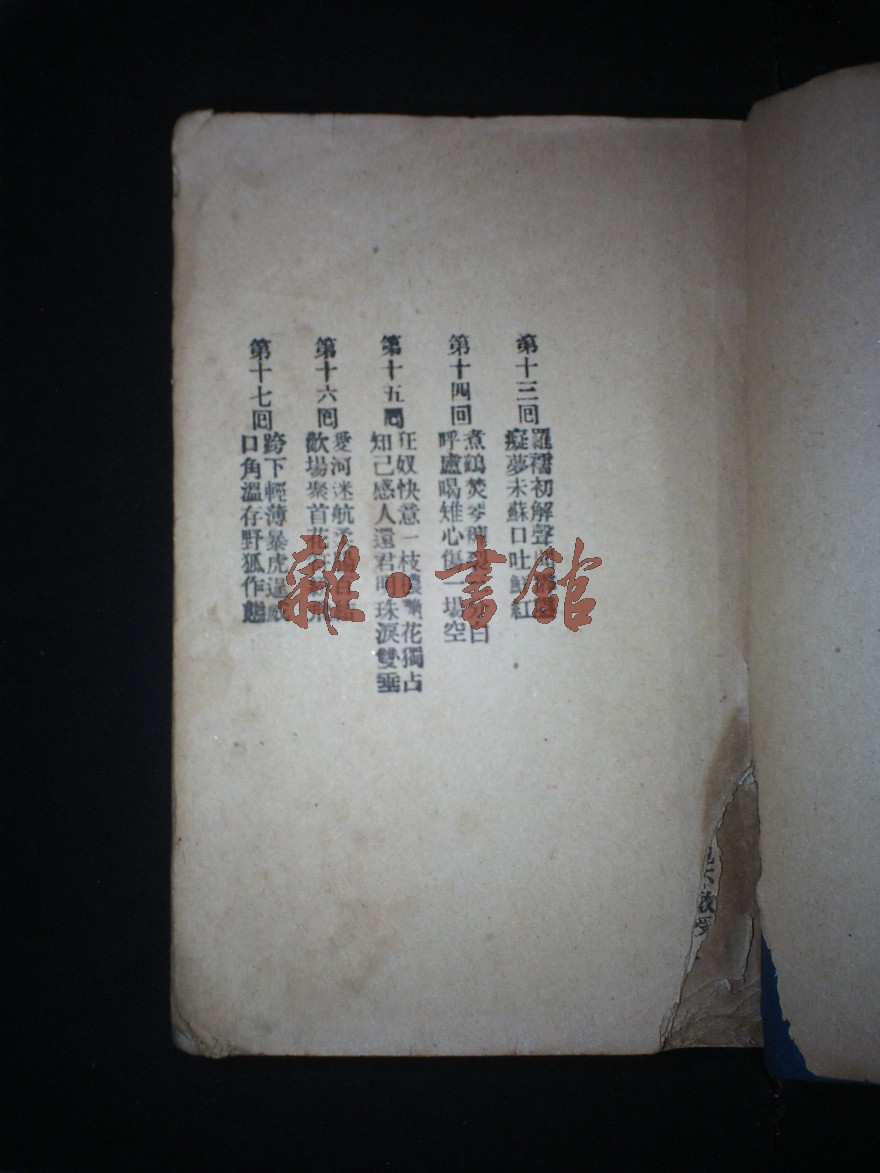 第十三回
羅襦初解聲
癡夢未蘇口吐鮮紅
第十四回
煮鶴焚琴
呼盧喝雉心傷一場空
第十五回
狂奴快意一枝 花獨占
知己感人還君明珠淚雙垂
第十六回
愛河迷航
歡場聚首花
第十七回
跨下輕薄暴虎逞威
口角溫存野狐作態
雜·書館